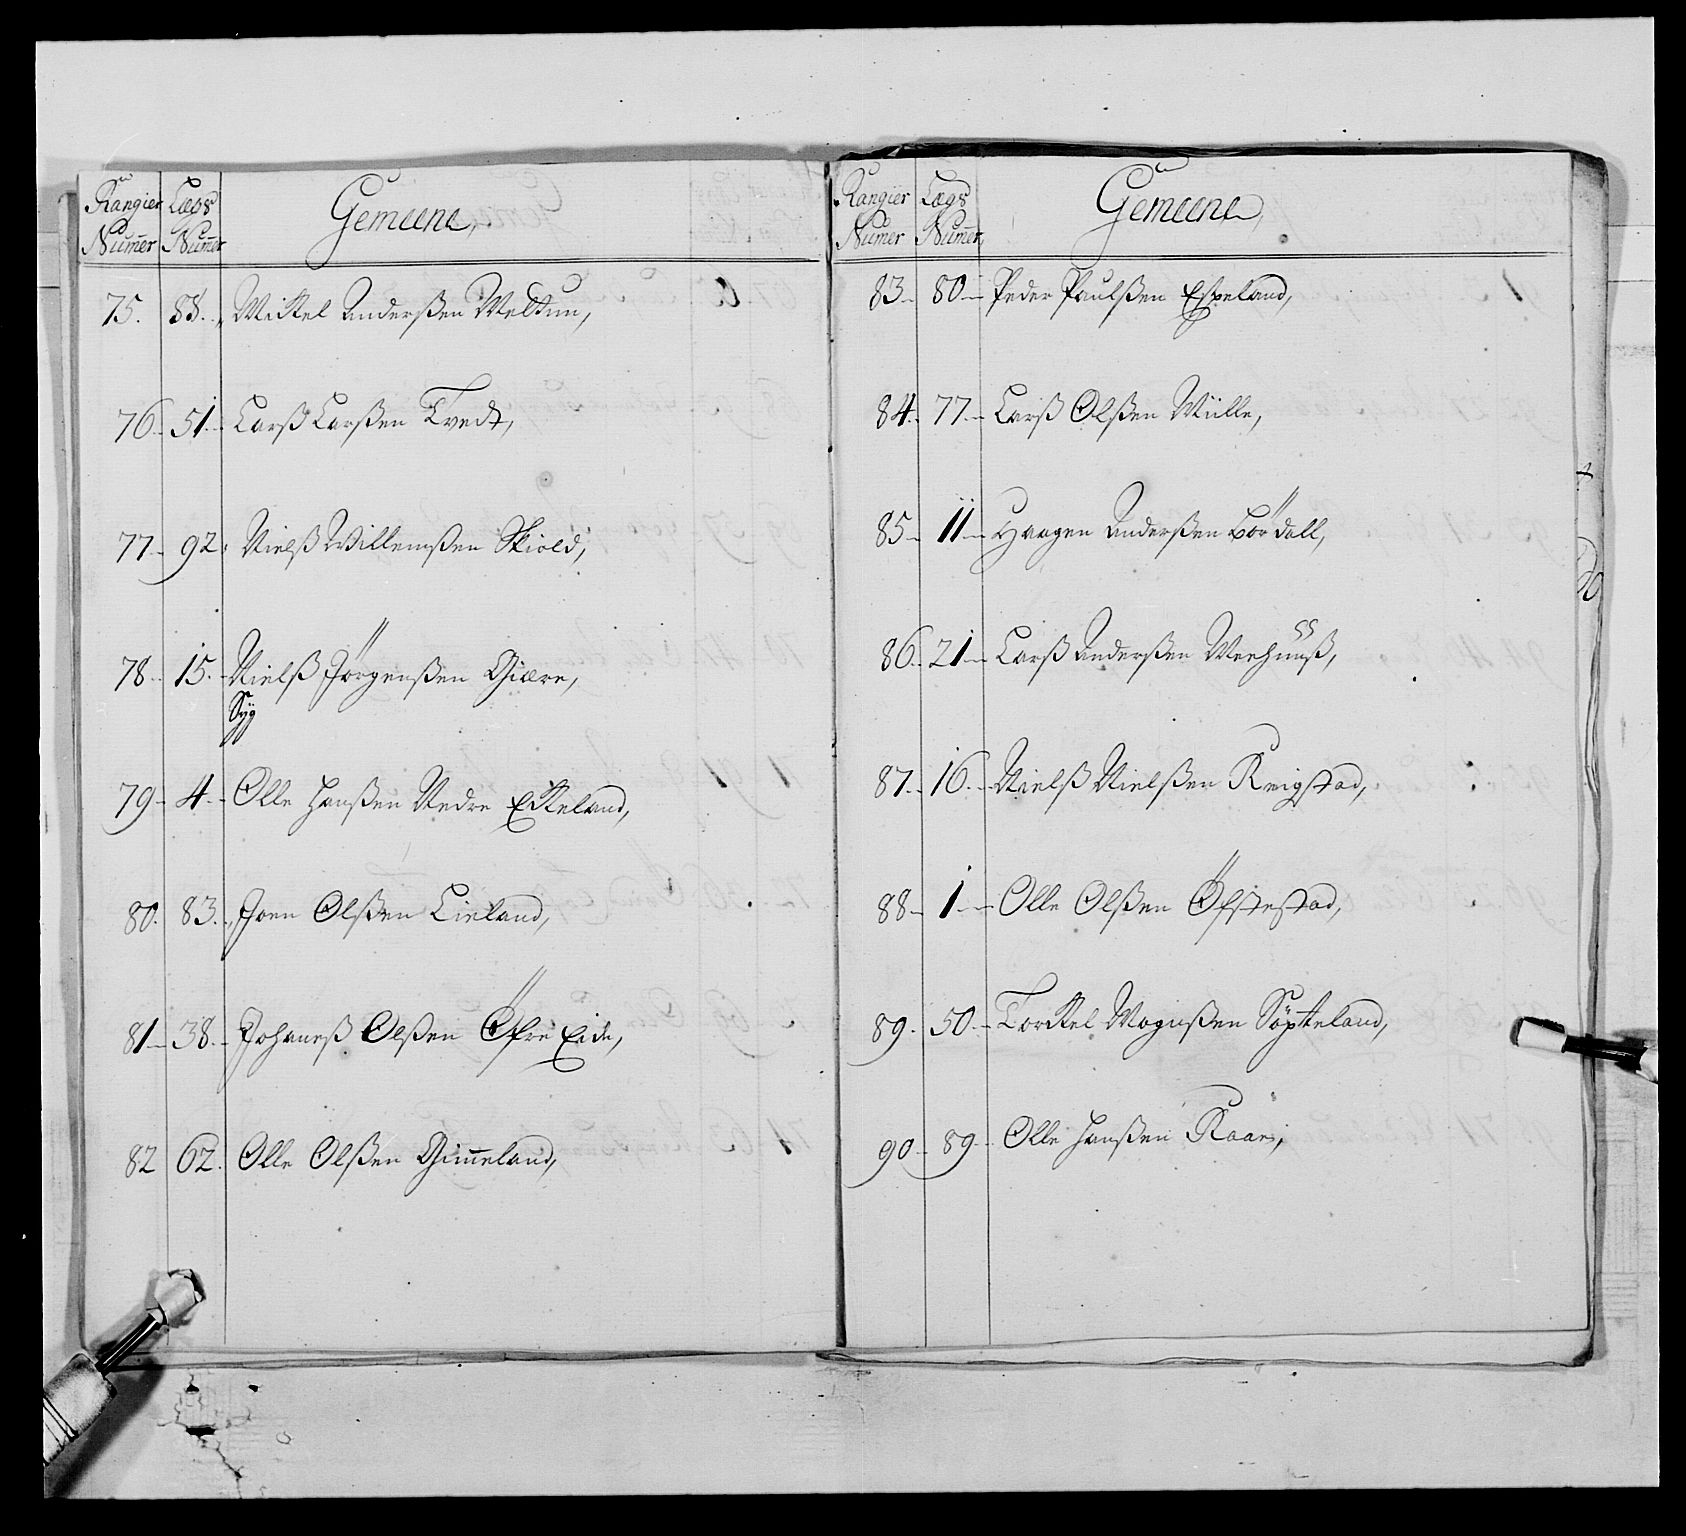 Rangier Numer | Lægs Numer | Gemeene,
75. 88. Mikkel Anderßen Meltun,
76. 51. Larß Larßen Tvedt,
77. 92. Nielß Willemßen Skiold,
78. 15. Nielß Jörgenßen Giære,
Syg
79. 4. Olle Hanßen Nedre Eikeland,
80. 83. Joen Olßen Lieland,
81. 38. Johaneß Olßen Öfre Eide,
82 62. Olle Olßen Gimeland,
Rangier Numer | Lægs Numer | Gemeene,
83. 80. Peder Paulßen Espeland,
84. 77. Larß Olßen Mülle,
85. 11. Haagen Anderßen Bördall,
86. 21. Larß Anderßen Meehuuß,
87. 16. Nielß Nielßen Reigstad,
88. 1. Olle Olßen Öfstestad,
89. 50. Torkel Magnßen Söfteland,
90. 89. Olle Hanßen Raae,